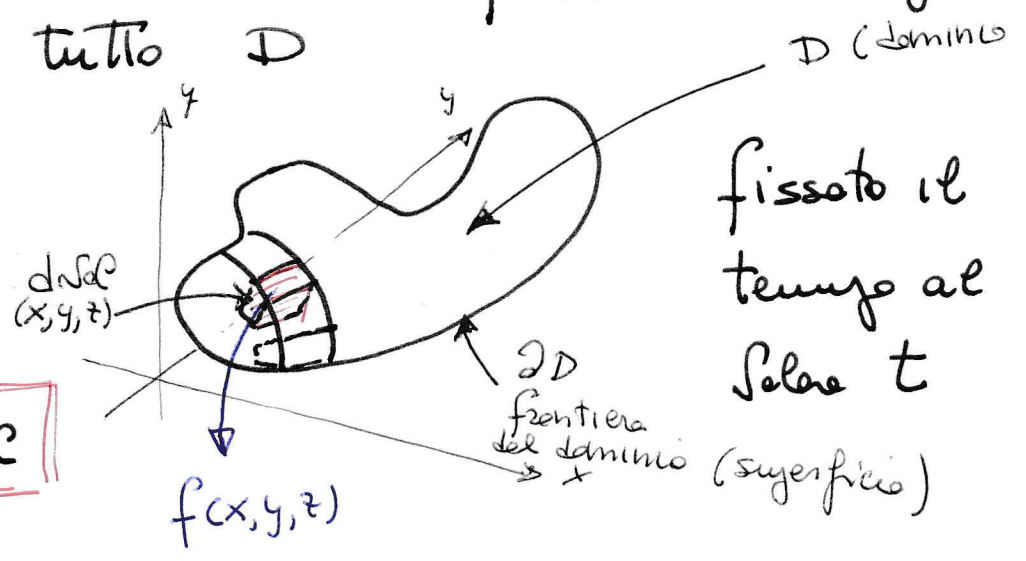 tutto D
D (dominio
y
y
fissato il
tempo al
valore t
dVol
(x,y,z)
∂D
frontiera
del dominio (superficie)
x
f(x,y,z)